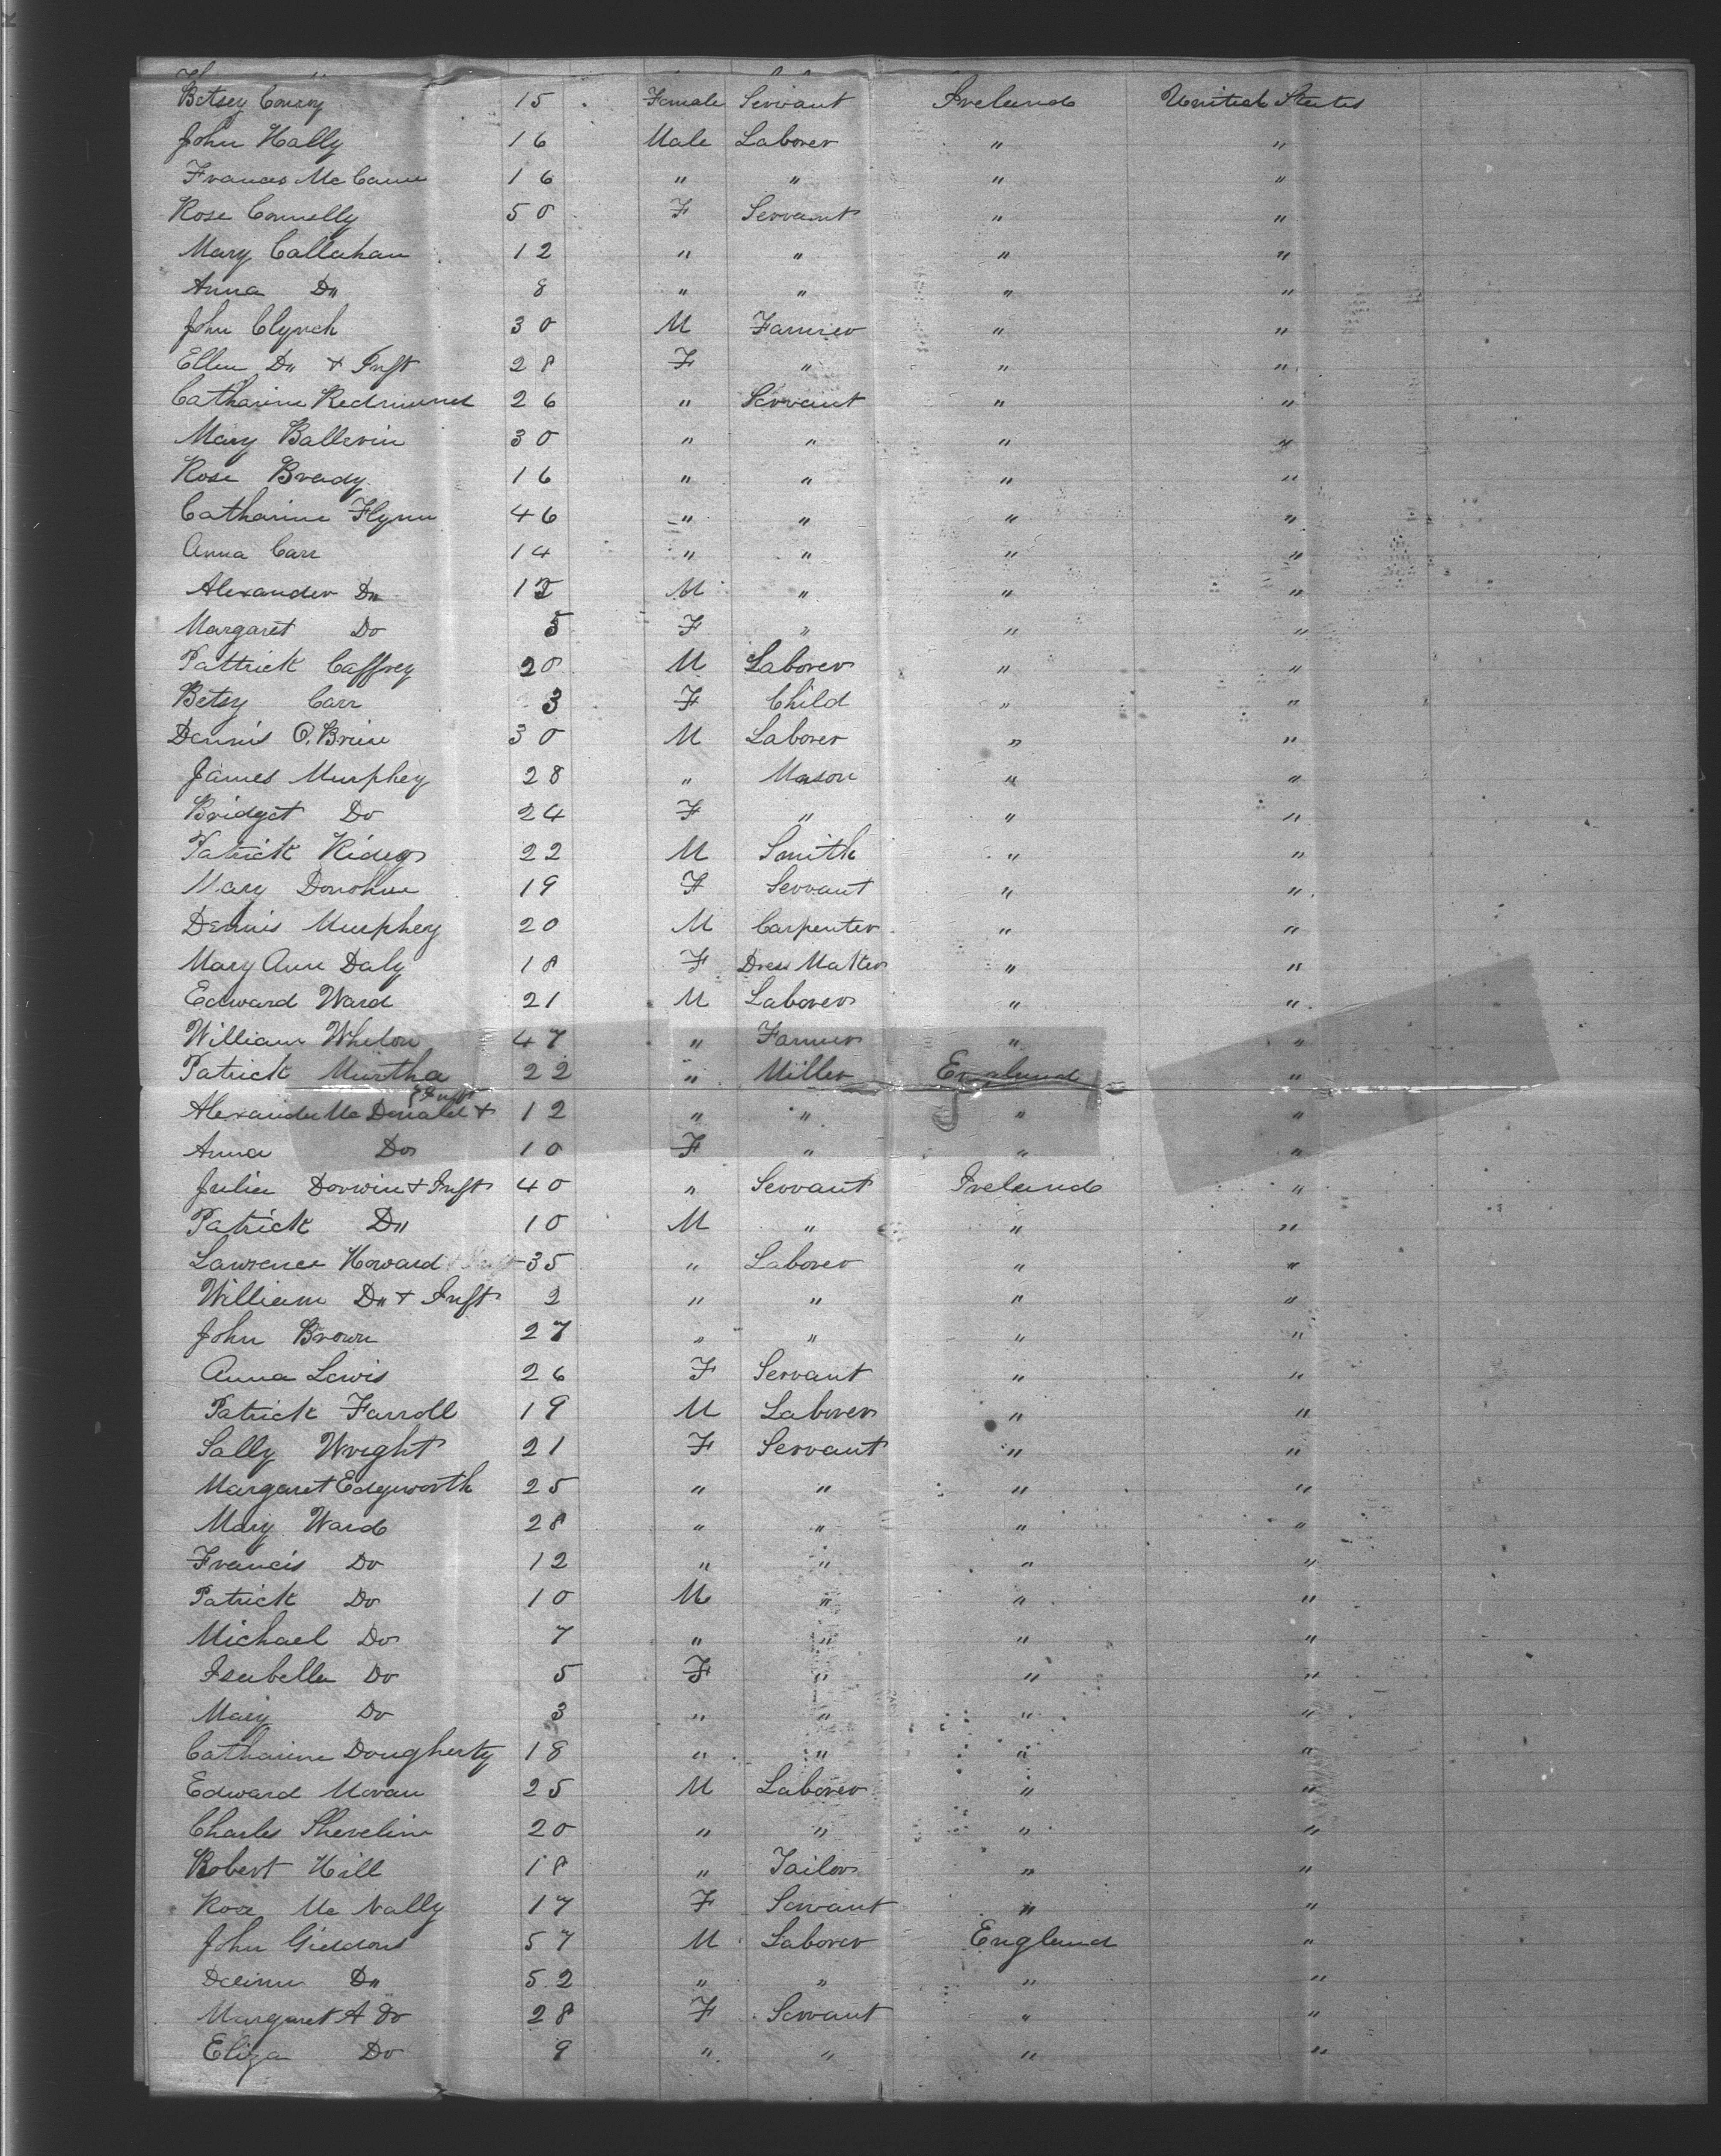 Betsey Conroy 15 Female Servant Ireland United States
John Hally 16 Male Laborer " "
Frances McCann 16 " " " "
Rose Connelly 50 F Servant " "
Mary Callahan 12 " " " "
Anna Do 8 " " " "
John Clynch 30 M Farmer " "
Ellen Do & Inft 28 F " " "
Catharine Redmund 26 " Servant " "
Mary Ballevin 30 " " " "
Rose Brady 16 " " " "
Catharine Flynn 46 " " " "
Anna Carr 14 " " " "
Alexander Do 12 M " " "
Margaret Do 5 F " " "
Pattrick Caffrey 20 M Laborer " "
Betsy Carr 3 F Child " "
Dennis O.Brien 30 M Laborer " "
James Murphey 28 " Mason " "
Bridget Do 24 F " " "
Patrick 22 M Smith " "
Mary Donohue 19 F Servant " "
Dennis Murphey 20 M Carpenter " "
Mary Ann Daly 18 F Dress Maker " "
Edward Ward 21 M Laborer " "
William Whelon 47 " Farmer " "
Patrick Murtha 22 " Miller England "
Alexander McDonald & Inft 12 " " " "
Anna Do 10 F " " "
Julia Dorwin & Inft 40 " Servant Ireland "
Patrick Do 10 M " " "
Lawrence Howard 35 " Laborer " "
William Do & Inft 2 " " " "
John Brown 27 " " " "
Anna Lewis 26 F Servant " "
Patrick Farroll 19 M Laborer " "
Sally Wright 21 F Servant " "
Margaret Edgworth 25 " " " "
Mary Ward 28 " " " "
Francis Do 12 " " " "
Patrick Do 10 M " " "
Michael Do 7 " " " "
Isabella Do 5 F " " "
Mary Do 3 " " " "
Catharine Dougherty 18 " " " "
Edward Moran 25 M Laborer " "
Charles Sheveline 20 " " " "
Robert Hill 18 " Tailor " "
Rose McNally 17 F Servant " "
John Giddons 57 M Laborer England "
Do 52 " " " "
Margaret A Do 28 F Servant " "
Eliza Do 9 " " " "